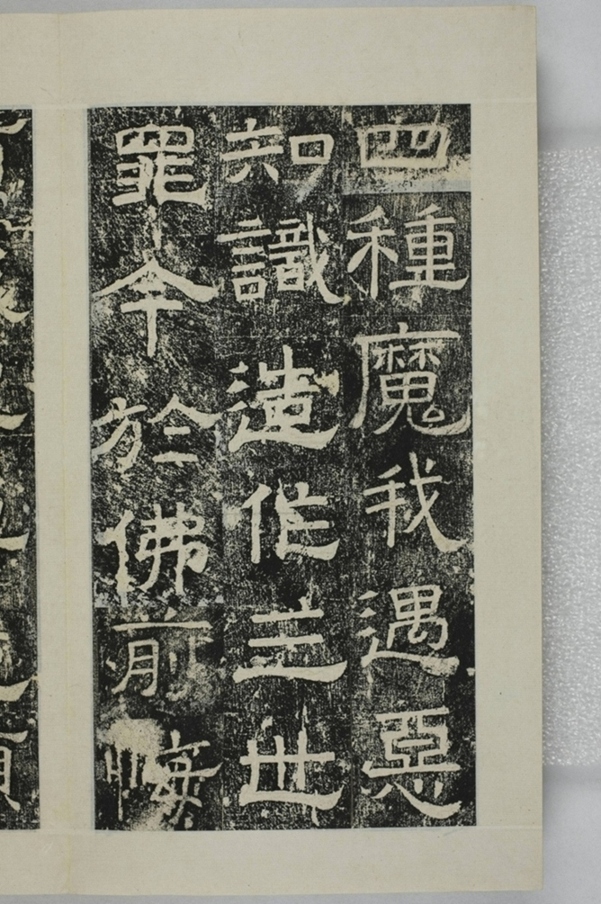 四種魔我遇惡
知識造作三世
罪今於佛前悔